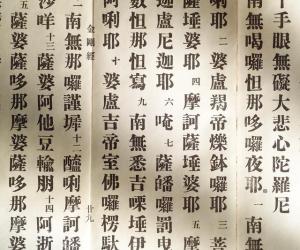 手眼無礙大悲心陀羅尼
南無喝囉怛那哆囉夜耶 一 南無
唎耶 二 婆盧羯帝爍鉢囉耶 三 菩
薩埵婆耶 四 摩訶薩埵婆耶 五 摩
迦盧尼迦耶 六 唵 七 薩皤囉罰曳
數怛那怛寫 九 南無悉吉埵伊
阿唎耶 十 婆盧吉帝室佛囉楞馱
金剛經 廿九
二 南無那囉謹墀 十二 醯唎摩訶
沙咩 十三 薩婆阿他豆輸朋 十四 阿逝
五 薩婆薩哆那摩婆薩哆那摩